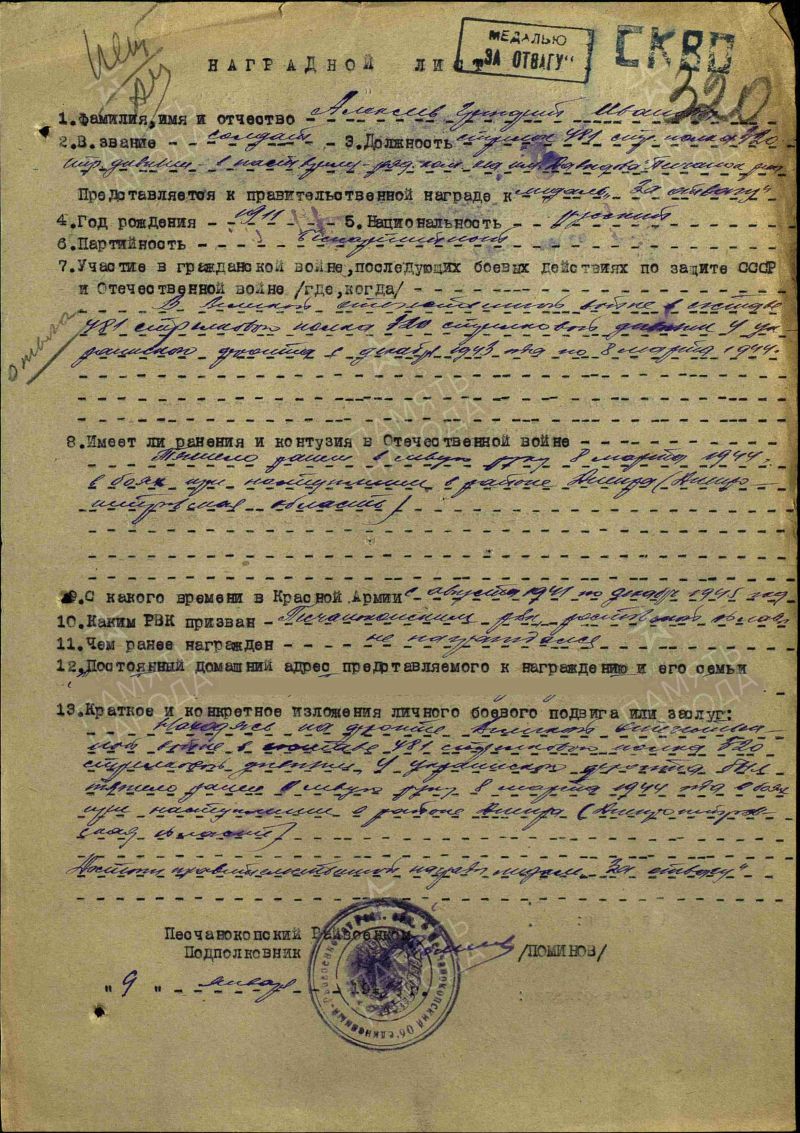 МЕДАЛЬЮ
"ЗА ОТВАГУ"
СКВО
320
НАГРАДНОЙ ЛИСТ
1. Фамилия, имя и отчество Иванович
2. В. звание солдат 3. Должность стрелок 481 стр. полка 320
Представляется к правительственной награде к медаль "За отвагу"
4. Год рождения 1911 5. Национальность русский
6. Партийность беспартийный
7. Участие в гражданской войне, последующих боевых действиях по защите СССР
и Отечественной войне /где, когда/
В Великой отечественной войне в составе
481 стрелкового полка 320 стрелковой дивизии 4 ук
раинского фронта с декабря 1943 года по 8 марта 1944.
8. Имеет ли ранения и контузия в Отечественной войне
Тяжело ранен в левую руку 8 марта 1944 г.
в боях при наступлении в районе Днепра (Днепро
петровская область)
9. С какого времени в Красной Армии с августа 1941 по декабрь 1945 год
10. Каким РВК призван Песчанокопским рвк ростовской области
11. Чем ранее награжден не награждался
12. Постоянный домашний адрес представляемого к награждению и его семьи
13. Краткое и конкретное изложения личного боевого подвига или заслуг:
Находясь на фронте Великой отечествен
ной войне в составе 481 стрелкового полка 320
стрелковой дивизии 4 украинского фронта был
тяжело ранен в левую руку 8 марта 1944 года в боях
при наступлении в районе Днепра (Днепропетров
ская область)
Достоин правительственной награды медали "За отвагу"
Песчанокопский Райвоенком
Подполковник /ПОМИНОВ/
"9" января